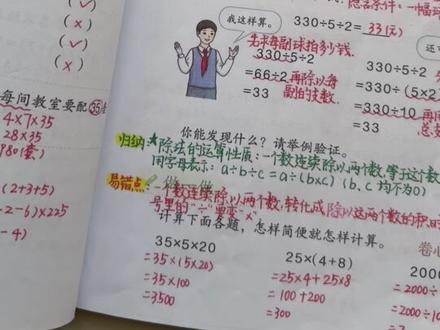 (✓)
(×)
(✓)
(×)
每间教室要配35
4×7×35
28×35
980(套)
(2+3+5)
-2-6)×225
-4)
我这样算。
330÷5÷2=33(元)
先求每副球拍多少钱.
330÷5÷2
=66÷2 再除以每副的支数.
=33
330÷5÷2
=330÷(5×2)
=330÷10 再
=33
你能发现什么？请举例验证。
归纳:★除法的运算性质:一个数连续除以两个数,等于这个数
用字母表示: a÷b÷c=a÷(b×c) (b、c均不为0)
易错点: 做一做
一个数连续除以两个数,转化成除以这两个数的积时
号里的"÷"要变"×"
计算下面各题，怎样简便就怎样计算。
35×5×20
=35×(5×20)
=35×100
=3500
25×(4+8)
=25×4+25×8
=100+200
=300
2000÷
=2000÷
=2000